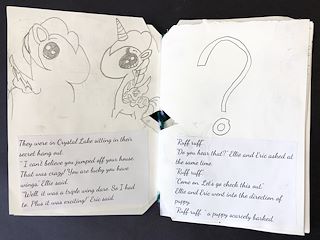 They were in Crystal Lake sitting in their
secret hang out.
"I can't believe you jumped off your house.
That was crazy! You are lucky you have
wings." Ellie said.
"Well, it was a triple wing dare. So I had
to. Plus it was exciting!" Eric said.
"Ruff ruff"
"Do you hear that?" Ellie and Eric asked at
the same time.
"Ruff ruff"
"Come on. Let's go check this out."
Ellie and Eric went into the direction of
puppy.
"Ruff ruff" a puppy scarcely barked.